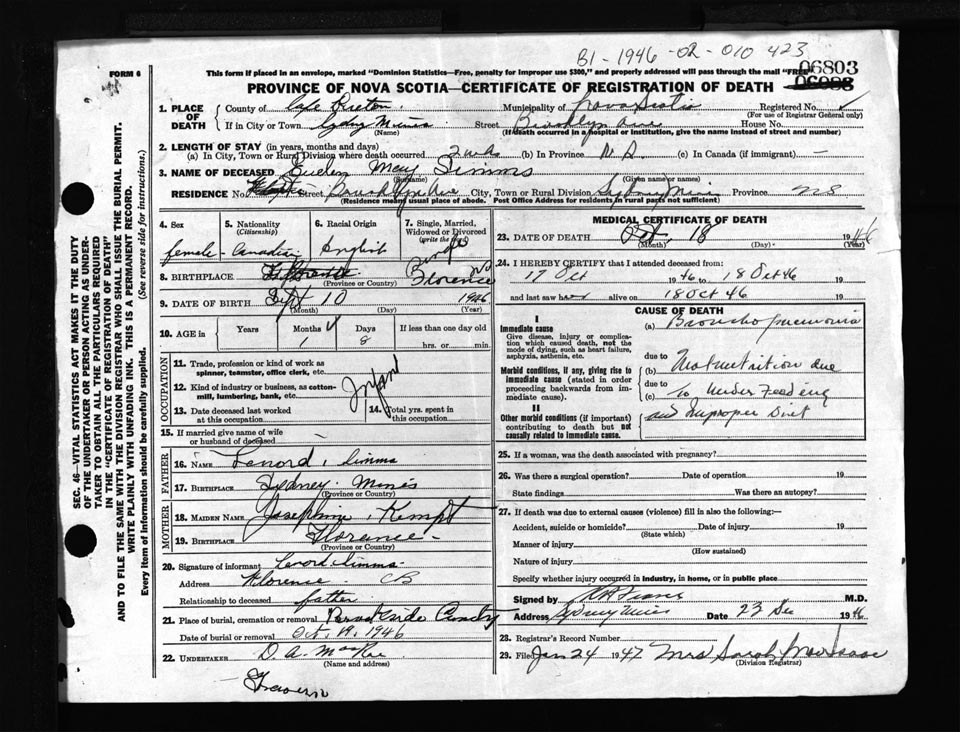 B1-1946-02-010423
FORM 6
This form if placed in an envelope, marked "Dominion Statistics—Free, penalty for improper use $300," and properly addressed will pass through the mail "FREE"
06803
PROVINCE OF NOVA SCOTIA—CERTIFICATE OF REGISTRATION OF DEATH
1. PLACE OF DEATH
County of Cape Breton Municipality of Nova Scotia Registered No.
(For use of Registrar General only)
If in City or Town Sydney Mines Street Brooklyn Ave House No.
(Name) (If death occurred in a hospital or institution, give the name instead of street and number)
2. LENGTH OF STAY (in years, months and days)
(a) In City, Town or Rural Division where death occurred (b) In Province (c) In Canada (if immigrant) —
3. NAME OF DECEASED Evelyn May Simms
(Surname) (Given name or names)
RESIDENCE No. Street Ave City, Town or Rural Division Sydney Mines Province N S
(Residence means usual place of abode. Post Office Address for residents in rural parts not sufficient)
4. Sex 5. Nationality (Citizenship) 6. Racial Origin 7. Single, Married, Widowed or Divorced (write the word)
female - Canadian English Single
8. BIRTHPLACE Florence
(Province or Country)
9. DATE OF BIRTH Sept 10 1946
(Month) (Day) (Year)
10. AGE in Years Months Days If less than one day old
1 8 hrs. or min.
OCCUPATION
11. Trade, profession or kind of work as spinner, teamster, office clerk, etc.
12. Kind of industry or business, as cotton-mill, lumbering, bank, etc.
Infant
13. Date deceased last worked at this occupation
14. Total yrs. spent in this occupation
15. If married give name of wife or husband of deceased —
FATHER
16. NAME Lenord Simms
17. BIRTHPLACE Sydney Mines
(Province or Country)
MOTHER
18. MAIDEN NAME Josephine Kempt
19. BIRTHPLACE Florence -
(Province or Country)
20. Signature of informant Lenord Simms
Address Florence CB
Relationship to deceased father
21. Place of burial, cremation or removal
Date of burial or removal Oct. 19, 1946
22. UNDERTAKER D. A.
(Name and address)
MEDICAL CERTIFICATE OF DEATH
23. DATE OF DEATH Oct 18 1946
(Month) (Day) (Year)
24. I HEREBY CERTIFY that I attended deceased from:
17 Oct 1946 to 18 Oct 46
and last saw her alive on 18 Oct 46
CAUSE OF DEATH
I
Immediate cause
Give disease, injury or complication which caused death, not the mode of dying, such as heart failure, asphyxia, asthenia, etc.
(a) Broncho pneumonia
due to
Morbid conditions, if any, giving rise to immediate cause (stated in order proceeding backwards from immediate cause).
(b) Malnutrition due
due to
(c) to Under Feeding
II
Other morbid conditions (if important) contributing to death but not causally related to immediate cause.
and Improper Diet
25. If a woman, was the death associated with pregnancy?
26. Was there a surgical operation? Date of operation 19
State findings Was there an autopsy?
27. If death was due to external causes (violence) fill in also the following:—
Accident, suicide or homicide? Date of injury 19
(State which)
Manner of injury
(How sustained)
Nature of injury
Specify whether injury occurred in industry, in home, or in public place
Signed by M.D.
Address Sydney Mines Date 23 Dec 1946
28. Registrar's Record Number
29. File Jan 24 1947 Mrs Sarah MacIsaac
(Division Registrar)
SEC. 46—VITAL STATISTICS ACT MAKES IT THE DUTY
OF THE UNDERTAKER OR PERSON ACTING AS UNDERTAKER TO OBTAIN ALL THE PARTICULARS REQUIRED
IN THE "CERTIFICATE OF REGISTRATION OF DEATH"
AND TO FILE THE SAME WITH THE DIVISION REGISTRAR WHO SHALL ISSUE THE BURIAL PERMIT.
WRITE PLAINLY WITH UNFADING INK. THIS IS A PERMANENT RECORD.
Every item of information should be carefully supplied. (See reverse side for instructions.)